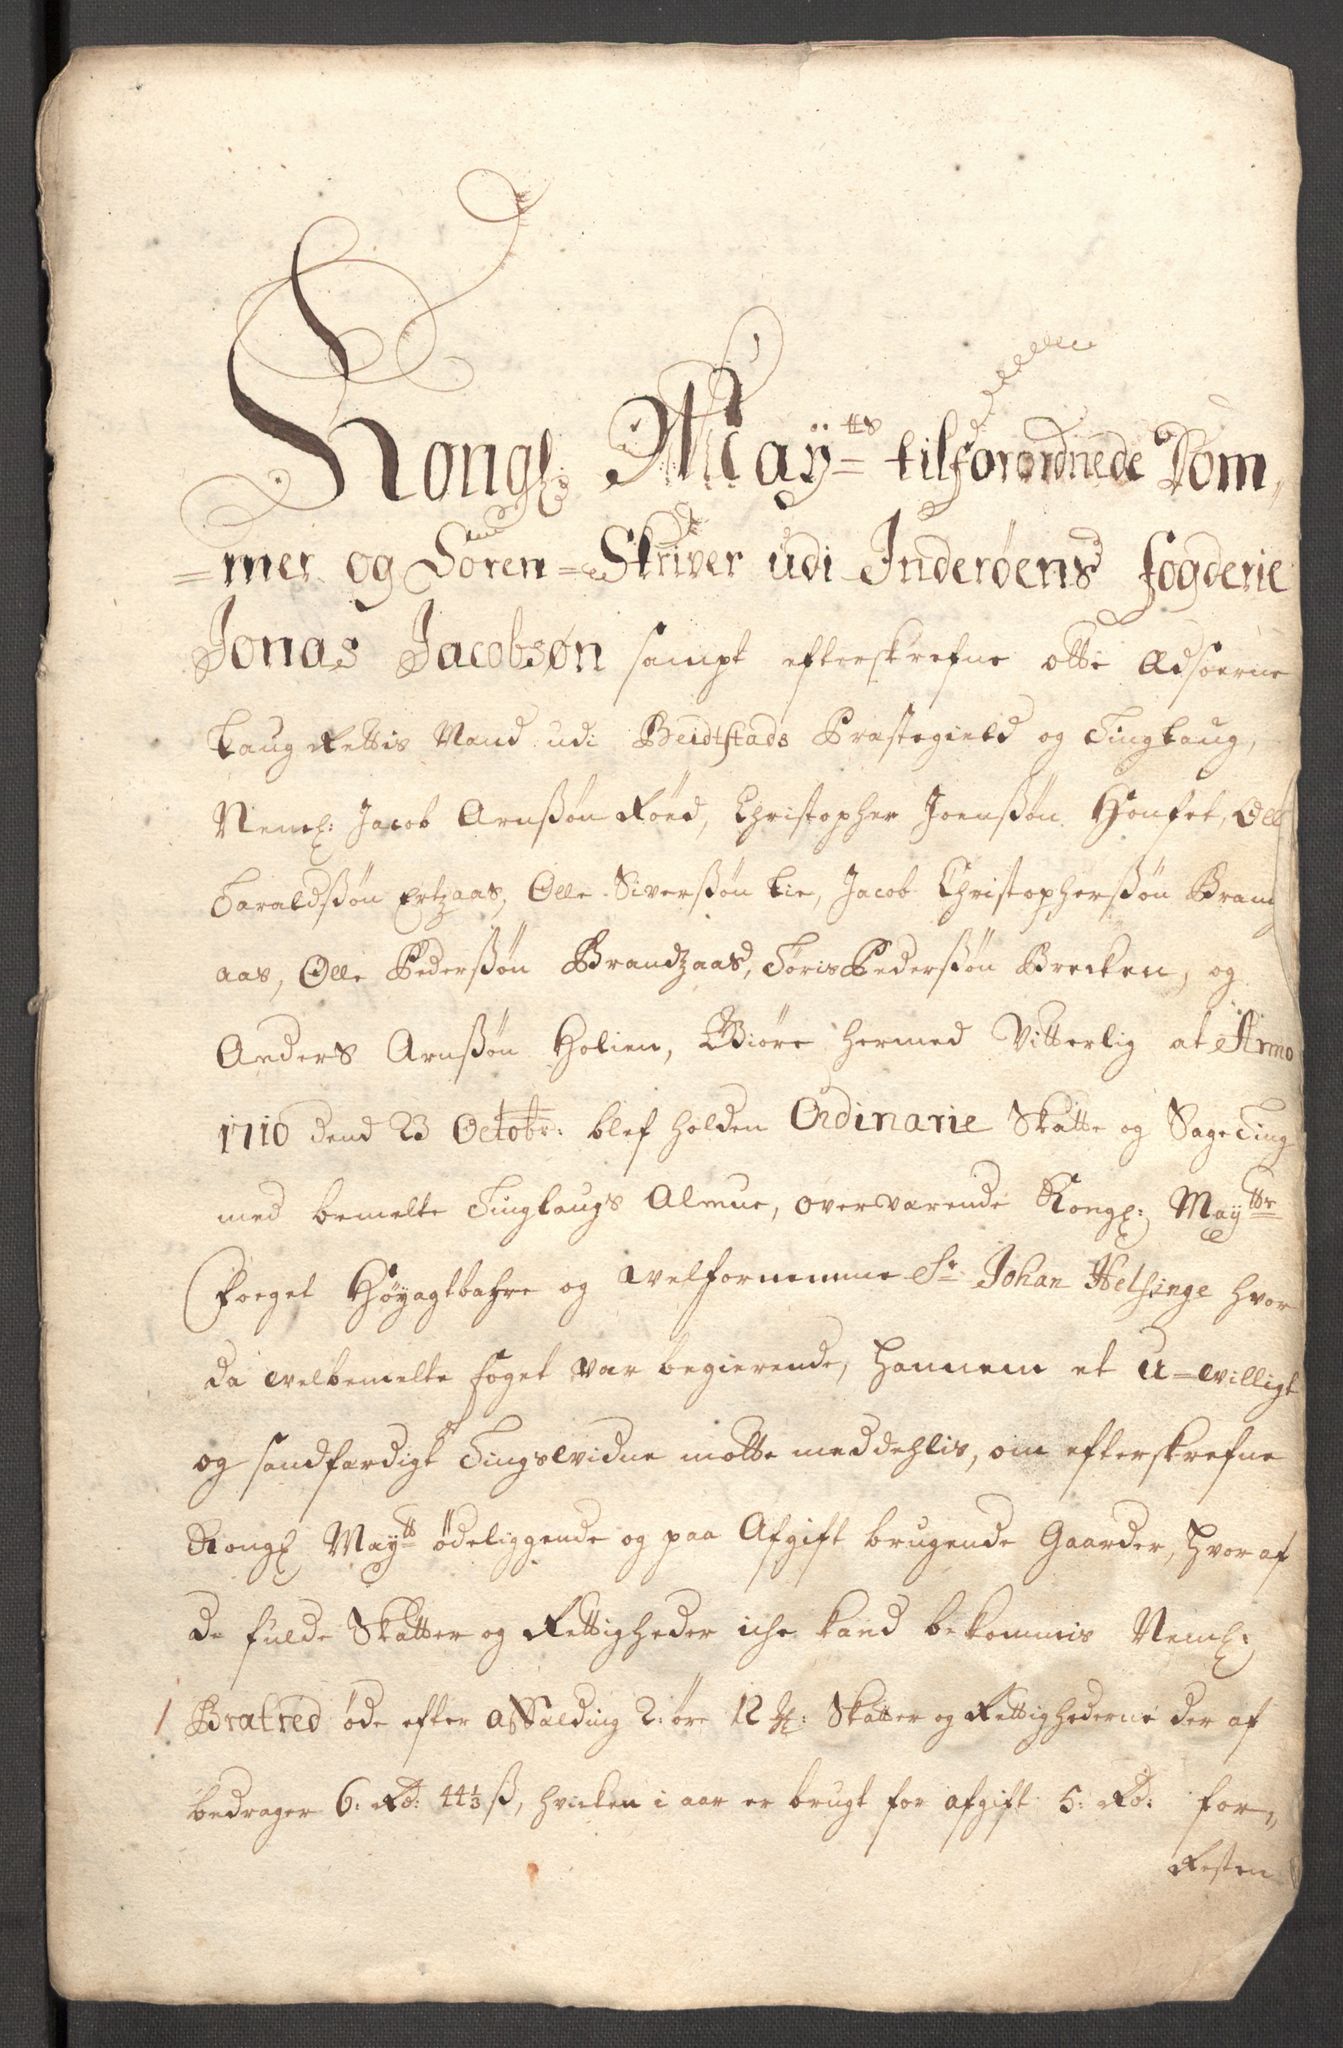 Kongl: Maÿ=tts tilforordnede Dom,
=mer og Soren=Skriver udi Inderøens fogderie
Jonas Jacobsøn sampt efterskrefne otte Ædsoerne
Laug Rettis Mænd udi Beidtstads Præstegield og Tinglaug,
Neml: Jacob Arnßøn Røed, Christopher Joenßøn Honset, Oll
Haraldßøn Ertzaas, Olle Siverßøn Lie, Jacob Christopherßøn Brand
aas, Olle Pederßøn Brandzaas, Tøris Pederßøn Brecken, og
Anders Arnßøn Holien, Giøre hermed Vitterlig at Anno
1710 dend 23 Octobr: blef holden Ordinarie Skatte og Sage Ting
med bemelte Tinglaugs Almue, overværende Kongl: Mayttz
Foeget Høyagtbahre og welfornemme Sr Johan Helsinge hvor
da welbemelte foget var begierende, hannem et u=willigt
og sandfærdigt Tingswidne motte meddehlis, om efterskrefne
Kongl Maytt ødeliggende og paa Afgift brugende Gaarder, hvor af
de fulde Skatter og Rettigheder iche kand bekommis Neml:
1 Bratred øde efter aßælding 2: øre 12 Skatter og Rettighederne der af
bedrager 6: Rd: 44⅓ ß, hvilken i aar er brugt for afgift 5: Rd: for,
Resten